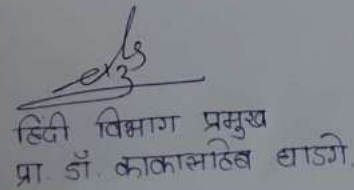 हिंदी विभाग प्रमुख
प्रा. डॉ. काकासाहेब धाडगे.